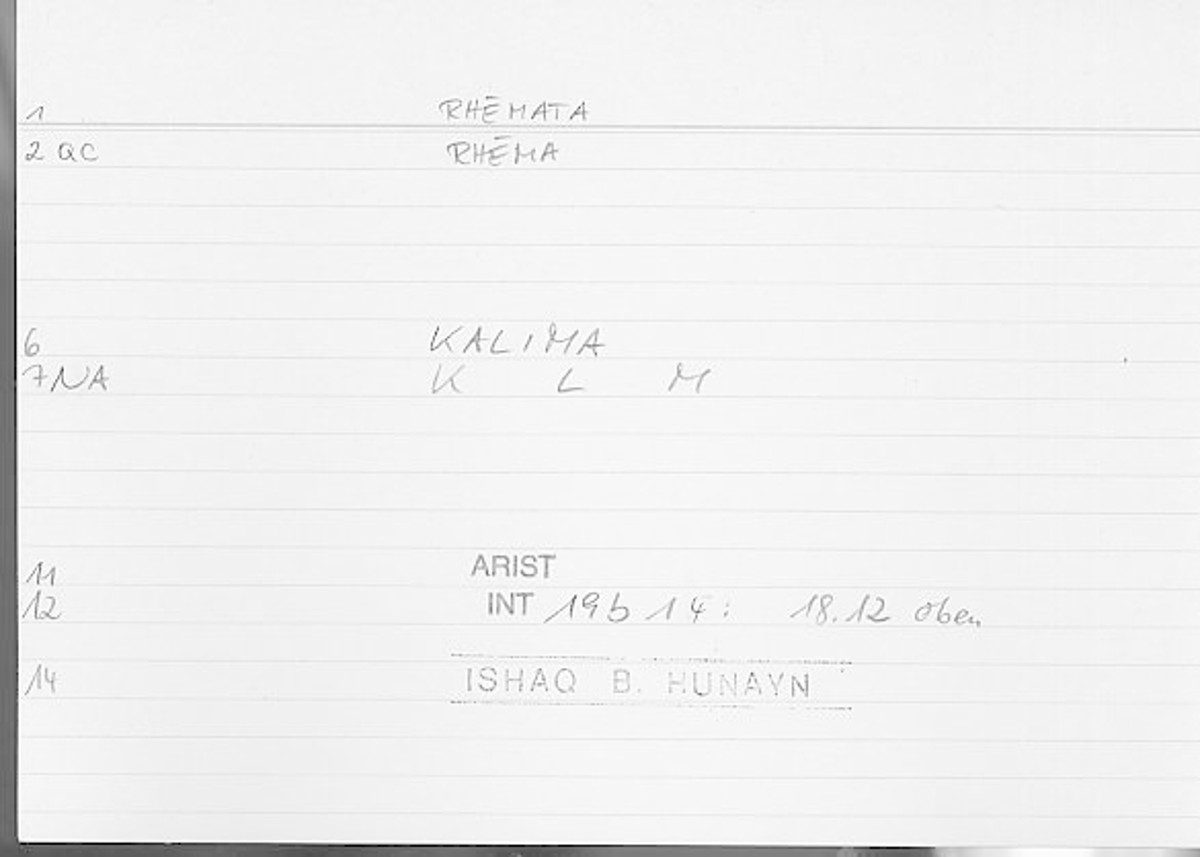 1 RHĒMATA
2 QC RHĒMA
6 KALIMA
7 NA K L M
11 ARIST
12 INT 19b 14: 18.12 oben
14 ISHAQ B. HUNAYN